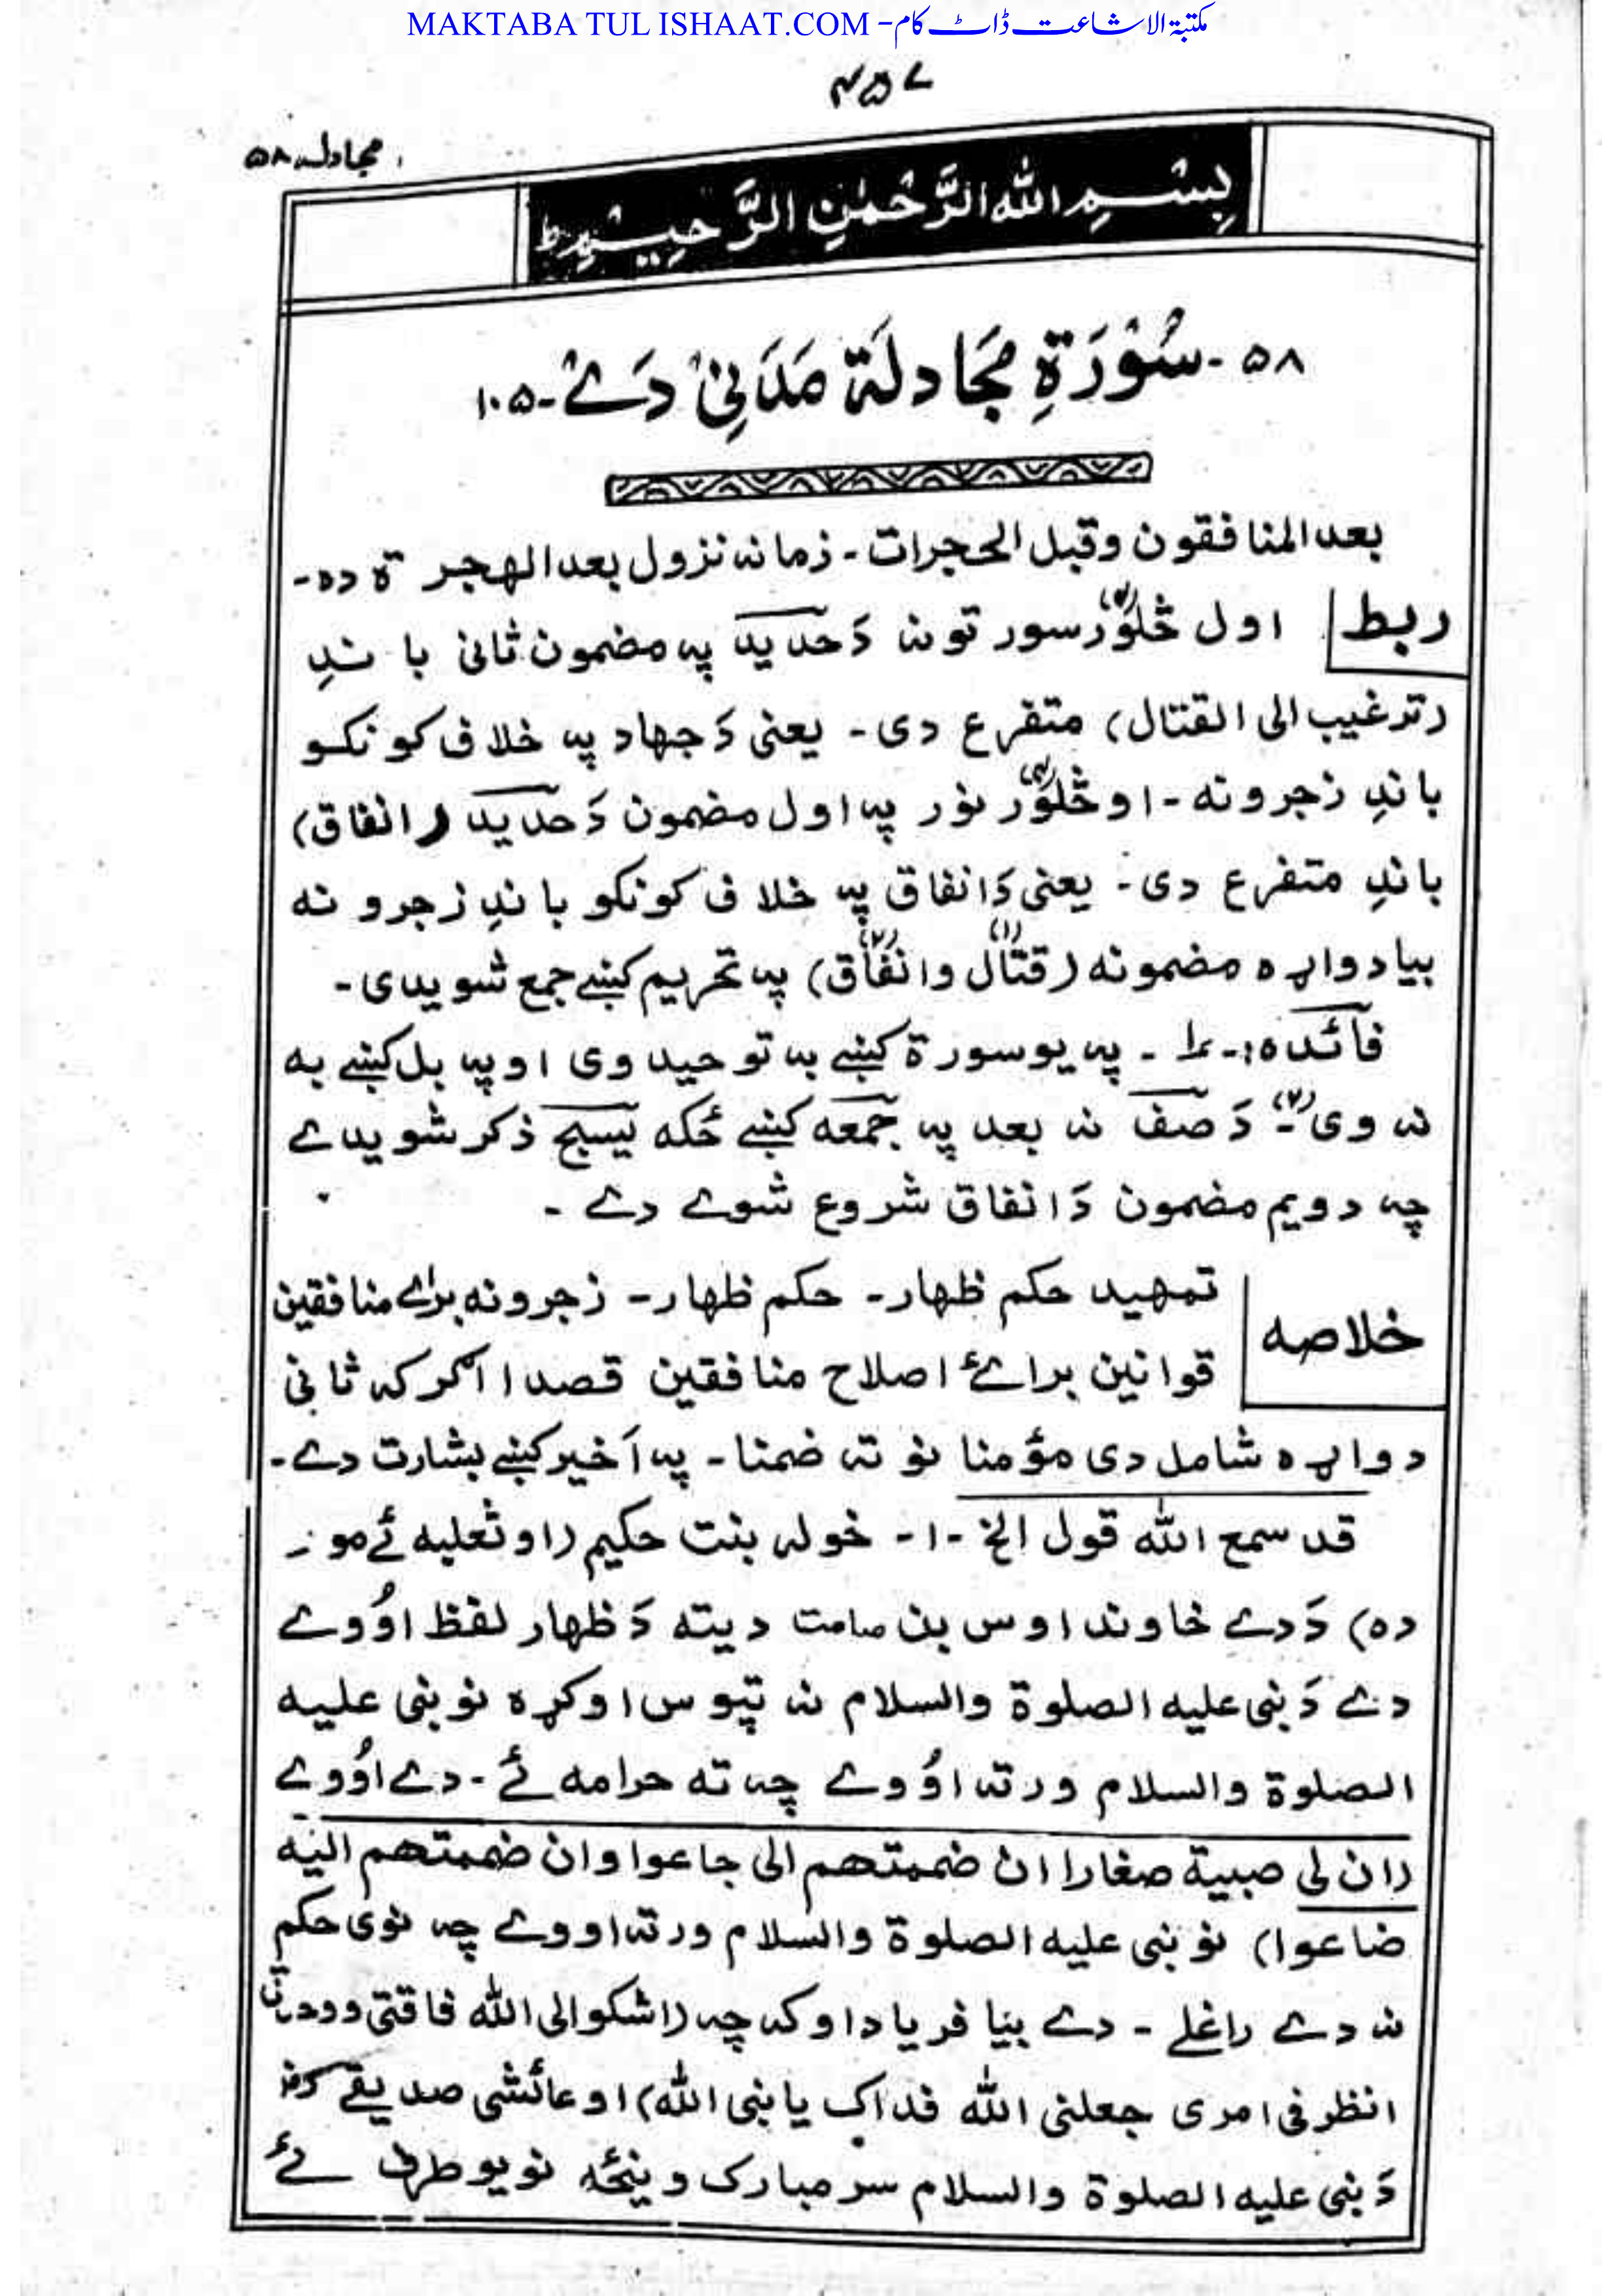 MAKTABA TUL ISHAAT.COM - مكتبة الاشاعت ڈاٹ کام
۴۵۷
مجادلہ ۵۸
بِسْمِ اللهِ الرَّحْمٰنِ الرَّحِيْمِ ط
۵۸ - سُوْرَةِ مُجَادلَة مَدَنِیْ دَے - ۱۰۵
بعد المنافقون وقبل الحجرات - زمانہ نزول بعد الهجرة ده -
ربط
اول څلوَرْ (۴) سورتونہ دَ حدید پہ مضمون ثانی باندِ
(ترغیب الی القتال) متفرع دی - یعنی دَ جهاد پہ خلاف کونکو
باندِ زجرونه - او څلوَرْ (۴) نور پہ اول مضمون دَ حدید (انفاق)
باندِ متفرع دی - یعنی دَ انفاق پہ خلاف کونکو باندِ زجرونه
بیا دواړه مضمونه (قتال (۱) وانفاق (۲)) پہ تحریم کښے جمع شویدی -
فائده :- ۱ - پہ یو سورة کښے بہ توحید وی او پہ بل کښے بہ
نہ وی - (۲) دَ صف نہ بعد پہ جمعه کښے ځکه یسبح ذکر شویدے
چہ دویم مضمون دَ انفاق شروع شوے دے -
خلاصه
تمهید حکم ظهار - حکم ظهار - زجرونه برائے منافقین
قوانین برائے اصلاح منافقین قصدا اگرکہ ثانی
دواړه شامل دی مؤمنانو تہ ضمنا - پہ اَخیر کښے بشارت دے -
قد سمع الله قول الخ - ۱ - خولہ بنت حکیم (او ثعلبه ئے مور
ده) دَ دے خاوند اوس بن صامت دیته دَ ظهار لفظ اوُوے
دے دَ نبی علیه الصلوة والسلام نہ تپوس اوکړه نو نبی علیه
الصلوة والسلام ورتہ اوُوے چہ ته حرامه ئے - دے اوُوے
(ان لی صبیة صغارا ان ضممتهم الی جاعوا وان ضممتهم الیه
ضاعوا) نو نبی علیه الصلوة والسلام ورتہ اووے چہ نوی حکم
نہ دے راغلے - دے بیا فریاد اوکہ چہ (اشکوا الی الله فاقتی ووحدتی
انظر فی امری جعلنی الله فداک یا نبی الله) او عائشی صدیقے
دَ نبی علیه الصلوة والسلام سر مبارک وینځه نو یو طرف ئے